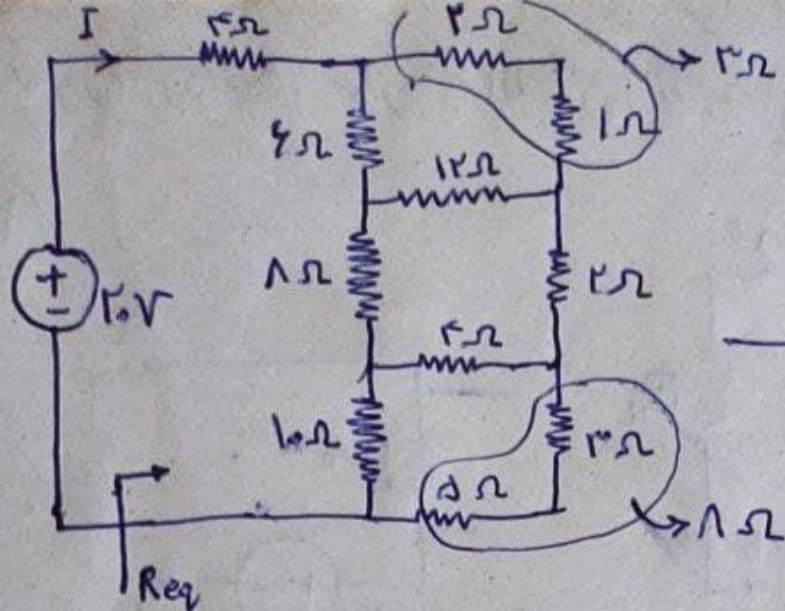 I
۴Ω
۲Ω
۳Ω
۶Ω
۱Ω
۱۲Ω
۸Ω
۲Ω
+
−
۲۰V
۴Ω
۱۰Ω
۳Ω
۵Ω
۸Ω
Req